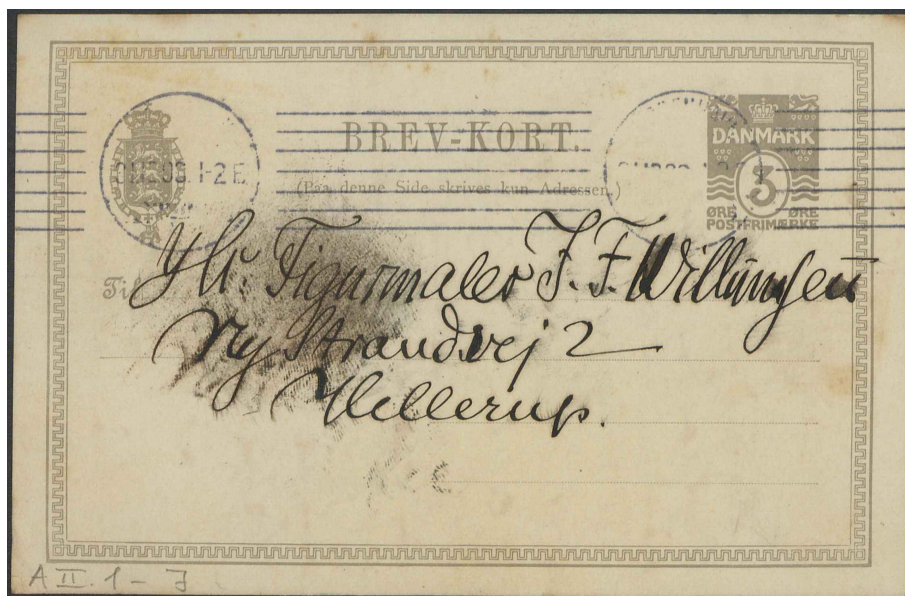 BREV-KORT.
(Paa denne Side skrives kun Adressen.)
DANMARK
3
ØRE ØRE
POSTFRIMÆRKE
1-2 E
Til
Hr. Figurmaler J. F. Willumsen
Ny Strandvej 2
Hellerup.
A II. 1 - J